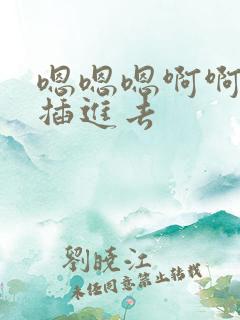 嗯嗯嗯啊啊
插進去
劉曉江
未经同意禁止转载